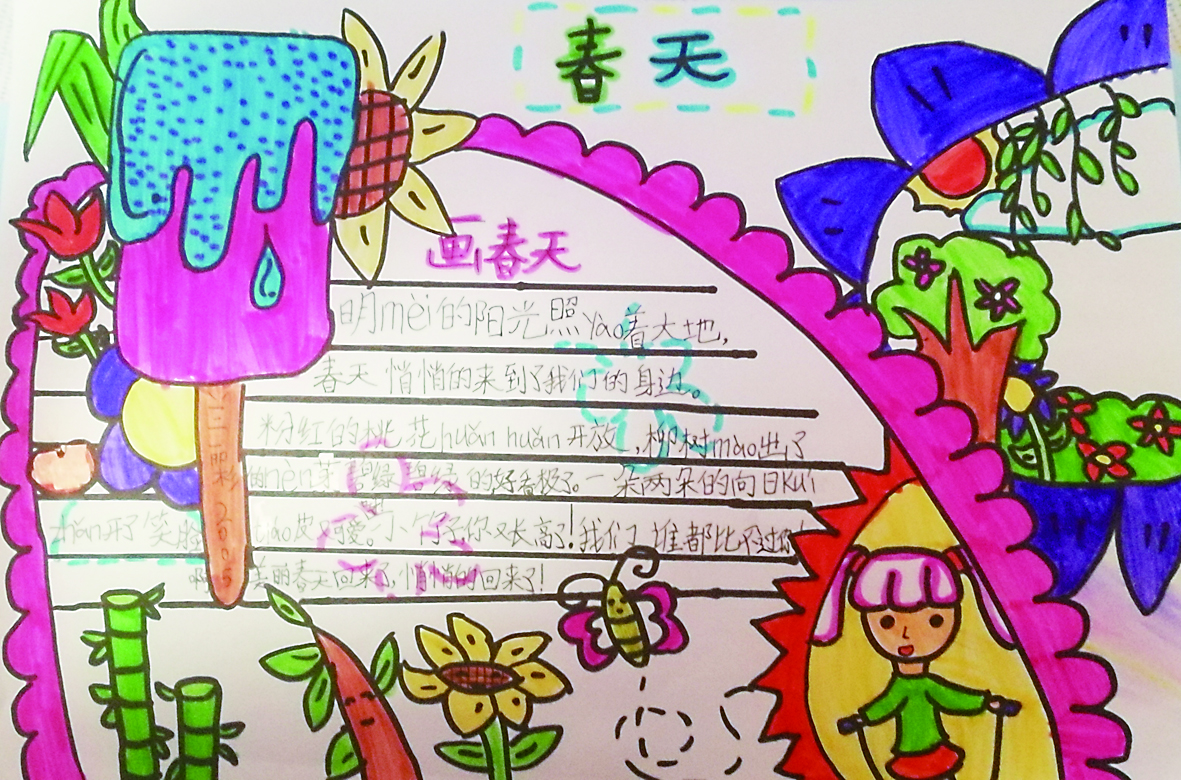 春天
画春天
明mèi的阳光照yào着大地,
春天悄悄的来到了我们的身边。
粉红的桃花huān huān开放,柳树mào出了
nèn芽 碧绿 碧绿的好香极了。一朵两朵的向日kuí
zhàn开了笑脸 皮可爱。小竹子你又长高了!我们谁都比不过你
啊 美丽春天回来了,悄悄的回来了!
三